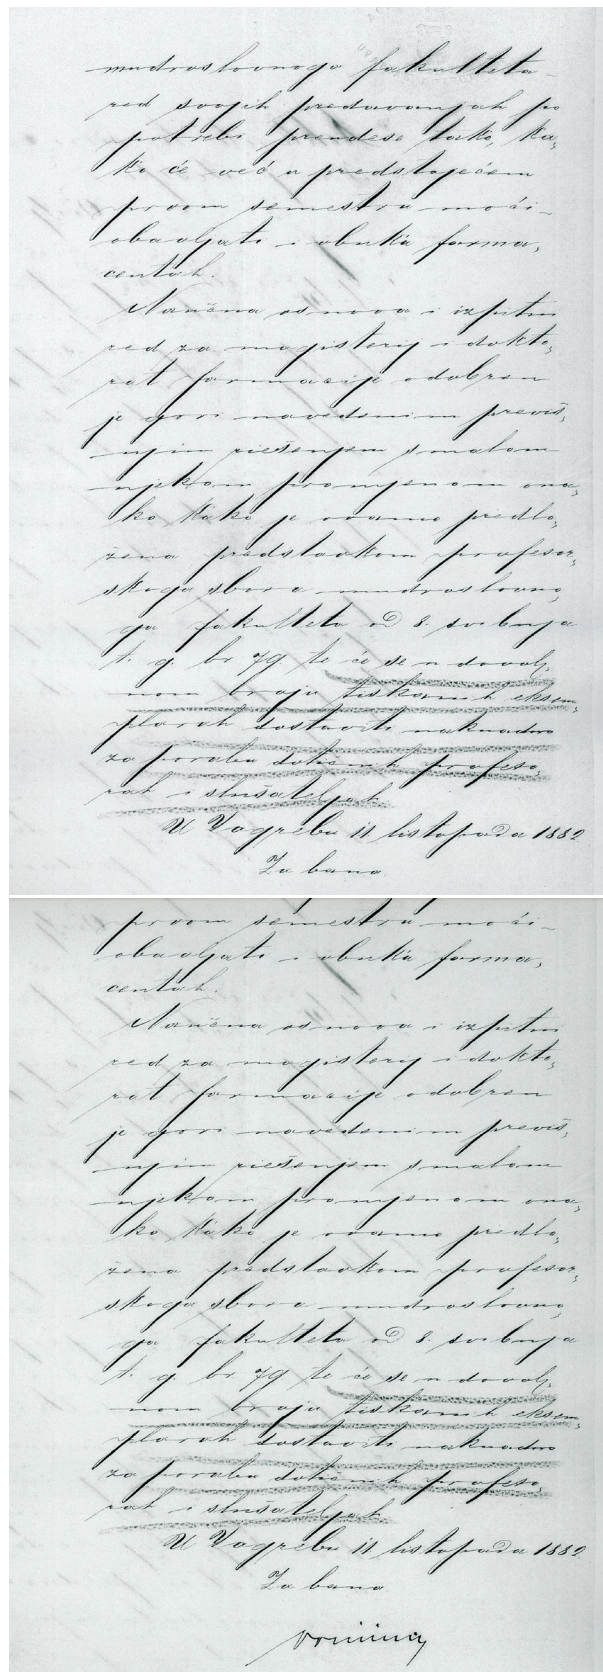 mudroslovnoga fakulteta
red svojih predavanjah po
potrebi preudese tako, ka,
ko će već u predstojećem
prvom semestru moći
obavljati i obuka farma,
ceutah.
Naučna osnova i izpitni
red za magisterij i dokto,
rat farmacije odobren
je gori navedenim previš,
njim riešenjem s malom
njekom promjenom ona,
ko kako je ovamo predlo,
žena predstavkom profesor,
skoga sbora mudroslovno,
ga fakulteta od 8. svibnja
t. g. br 79. te će se u dovolj,
nom broju tiskanih eksem,
plarah dostaviti naknadno
za porabu dotičnih profeso,
rah i slušateljah.
U Zagrebu 11 listopada 1882
Za bana
prvom semestru moći
obavljati i obuka farma,
ceutah.
Naučna osnova i izpitni
red za magisterij i dokto,
rat farmacije odobren
je gori navedenim previš,
njim riešenjem s malom
njekom promjenom ona,
ko kako je ovamo predlo,
žena predstavkom profesor,
skoga sbora mudroslovno,
ga fakulteta od 8. svibnja
t. g. br 79 te će se u dovolj,
nom broju tiskanih eksem,
plarah dostaviti naknadno
za porabu dotičnih profeso,
rah i slušateljah.
U Zagrebu 11 listopada 1882
Za bana